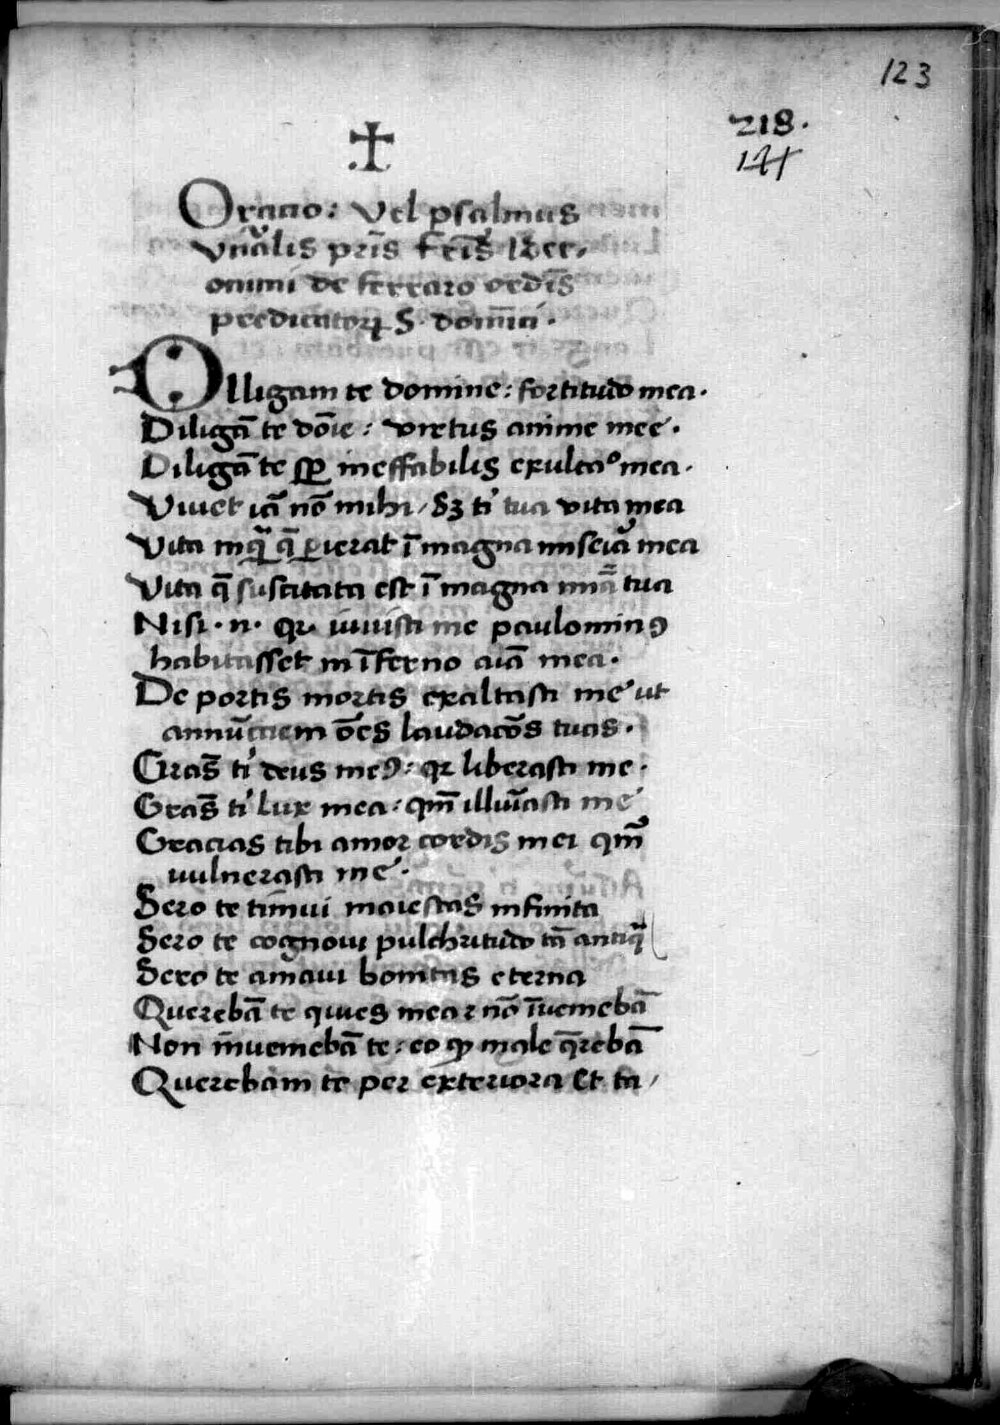 123
218.
141
✝
Oracio: Vel psalmus
prīs frīs Iher-
onimi de ferraro ordīs
predicatorꝝ S. dominici.
Diligam te domine: fortitudo mea.
Diligā te dōie: virtus anime mee.
Diligā te sꝑ ineffabilis exultaᵒ mea.
Viuet iā nō mihi / sꝫ tⁱ tua vita mea
Vita inqᷓ q̄ ꝑierat ī magna miseiā mea
Vita q̄ suscitata est ī magna miā tua
Nisi. n. qꝛ iuuisti me paulominꝯ
habitasset in īferno aiā mea.
De portis mortis exaltasti me ut
annūtiem ōēs laudacōs tuas.
Gras̄ tⁱ deus meꝯ: qꝛ liberasti me.
Gras̄ tⁱ lux mea: qm̄ illuīasti me
Gracias tibi amor cordis mei qm̄
uulnerasti me.
Sero te timui maiestas infinita
Sero te cognoui pulchritudo tā antiqᷓ
Sero te amaui bonitas eterna
Querebā te quies mea ⁊ nō īueniebā
Non īnueniebā te: eo ꝙ male q̄rebā
Querebam te per exteriora et ta/